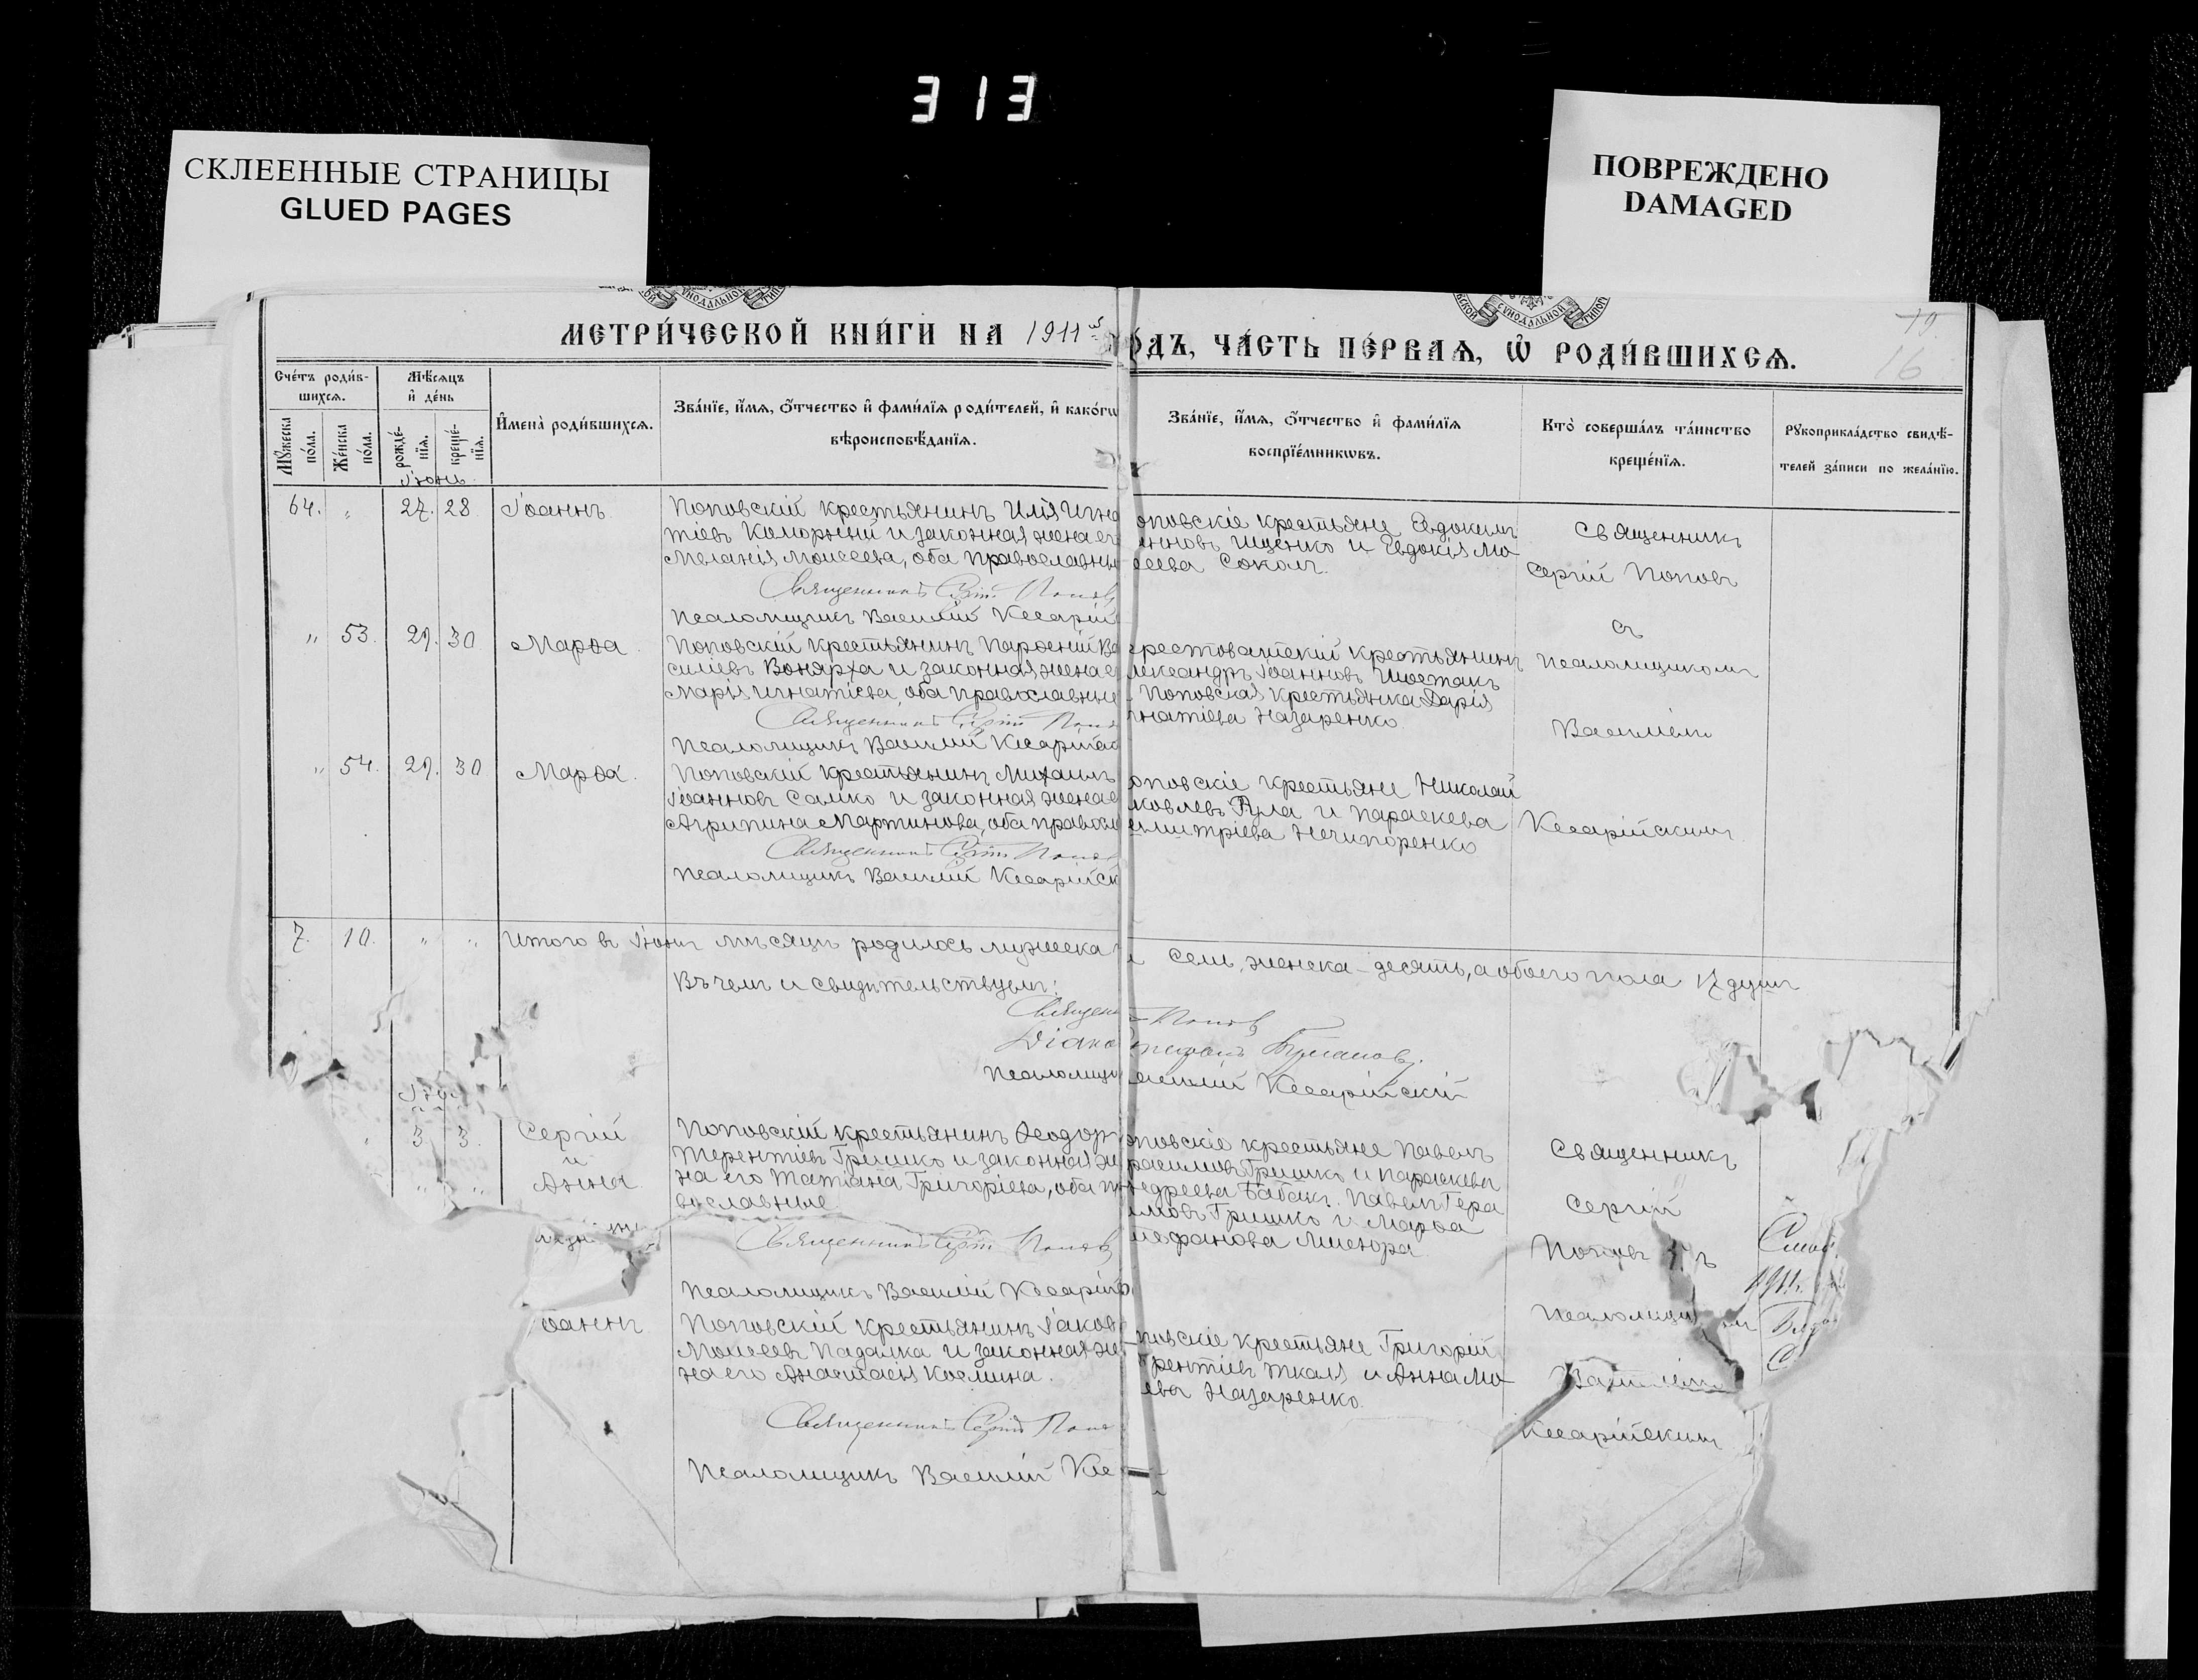 313
СКЛЕЕННЫЕ СТРАНИЦЫ
GLUED PAGES
ПОВРЕЖДЕНО
DAMAGED
МЕТРИ́ЧЕСКОЙ КНИ́ГИ НА 1911 й
О́ДЪ, ЧА́СТЬ ПЕ́РВАѦ, Ѡ҆ РОДИ́ВШИХСѦ.
16
Сче́тъ роди́в-
шихсѧ.
Мꙋ́жеска по́ла.
Же́нска по́ла.
Мѣ́сѧцъ
и҆ де́нь
рожде́-нїѧ.
креще́-нїѧ.
И҆мена̀ роди́вшихсѧ.
Зва́нїе, и҆́мѧ, ѻ҆́тчество и҆ фами́лїѧ роди́телей, и҆ како́гѡ
вѣроисповѣ́данїѧ.
Зва́нїе, и҆́мѧ, ѻ҆́тчество и҆ фами́лїѧ
воспрїе́мникѡвъ.
Кто̀ соверша́лъ та́инство
креще́нїѧ.
Рꙋкоприкла́дство свидѣ́-
телей за́писи по жела́нїю.
Іюнь
64. „ 27. 28. Іоаннъ
Поповскій крестьянинъ Илія Игна
тіевъ Коморный и законная жена ег
Меланія Моисеева, оба православны
Священникъ Сергій Попов
Псаломщикъ Василій Кесарій
оповскіе крестьяне Евдокимъ
анновъ Ищенко и Евдокія Мо-
сеева Соколъ.
Священникъ
Сергій Поповъ
съ
псаломщикомъ
Василіемъ
Кесарійскимъ
„ 53. 29. 30 Марѳа.
Поповскій крестьянинъ Парѳеній Ва
силіевъ Вонярха и законная жена е
Марія Игнатіева, оба православные
Священникъ Сергій Попо
Псаломщикъ Василій Кесарійс
рестоватскій крестьянинъ
лександръ Іоанновъ Шостакъ
Поповская крестьянка Дарія
гнатіева Назаренко
„ 54. 29. 30 Марѳа.
Поповскій крестьянинъ Михаилъ
Іоанновъ Самко и законная жена е
Агрипина Мартинова, оба правосл
Священникъ Сергій Попов
Псаломщикъ Василій Кесарійск
оповскіе крестьяне Николай
ковлевъ Рула и Параскева
имитріева Нечипоренко
7. 10. „ „ Итого въ Іюнѣ мѣсяцѣ родилось мужеска
семь, женска - десять, а обоего пола 17 душъ
Въ чемъ и свидѣтельствуемъ:
Священ Попов
Діако
Псаломщи асилій Кесарійскій
„ 3 3. Сергій
и
Анна.
Поповскій крестьянинъ Ѳеодоръ
Терентіевъ Гришко и законная же
на его Татіана Григоріева, оба пр
вославные
Священникъ Сергій Попов
Псаломщикъ Василій Кесарійс
повскіе крестьяне Павелъ
расимовъ Гришко и Параскева
ндреева Бабакъ. Павелъ Гера
имовъ Гришко и Марѳа
тефанова
Священникъ
Сергій
Поповъ съ
псаломщи мъ
Василіемъ
Кесарійскимъ
1911 г.
оаннъ
Поповскій крестьянинъ Іаковъ
Моисеевъ Падалка и законная же
на его Анастасія Космина.
Священникъ Сергій Попо
Псаломщикъ Василій Кес
повскіе крестьяне Григорій
ерентіевъ Ткаля и Анна Мо-
евы Назаренко.